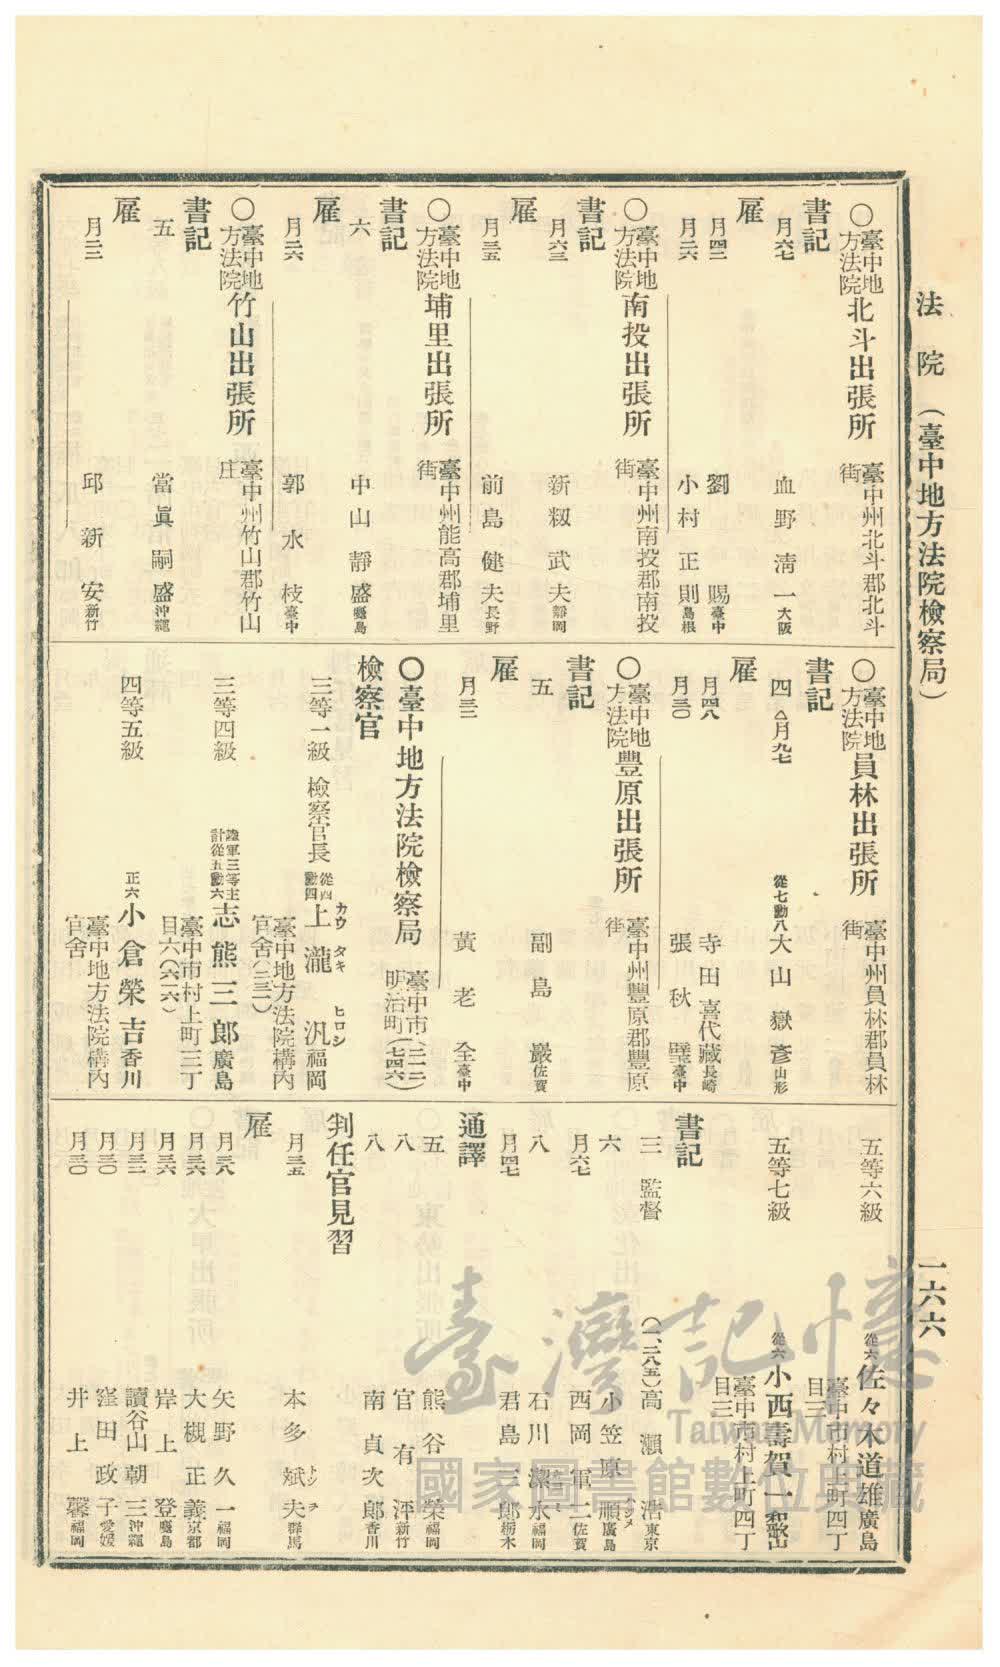 法院（臺中地方法院檢察局）
一六六
〇臺中地方法院北斗出張所 臺中州北斗郡北斗街
書記
月六七 血野淸一 大阪
雇
月四二 劉賜 臺中
月二六 小村正則 島根
〇臺中地方法院南投出張所 臺中州南投郡南投街
書記
月六三 新籾武夫 靜岡
雇
月三五 前島健夫 長野
〇臺中地方法院埔里出張所 臺中州能高郡埔里街
書記
六 中山靜盛 鹿兒島
雇
月二六 郭水枝 臺中
〇臺中地方法院竹山出張所 臺中州竹山郡竹山庄
書記
五 當眞嗣盛 沖繩
雇
月二二 邱新安 新竹
〇臺中地方法院員林出張所 臺中州員林郡員林街
書記
四 △月九七 從七勳八 大山嶽彥 山形
雇
月四八 寺田喜代藏 長崎
月三〇 張秋 臺中
〇臺中地方法院豐原出張所 臺中州豐原郡豐原街
書記
五 副島巖 佐賀
雇
月三二 黃老全 臺中
〇臺中地方法院檢察局 臺中市明治町
檢察官
三等一級 檢察官長 從四勳四 上瀧汎 福岡
カウ タキ ヒロシ
臺中地方法院構內官舍（三三一）
三等四級 陸軍三等主計從五勳六 志熊三郎 廣島
臺中市村上町三丁目六（六二六）
四等五級 正六 小倉榮吉 香川
臺中地方法院構內官舍
五等六級 從六 佐々木道雄 廣島
臺中市村上町四丁目三
五等七級 從六 小西壽賀一 和歌山
臺中市村上町四丁目三
書記
三 監督 （一、二八五） 高瀨浩 東京
六 小笠原順 廣島
月六七 西岡軍二 佐賀
八 石川潔水 福岡
月四七 君島三郎 栃木
通譯
五 熊谷榮 福岡
八 官有泙 新竹
八 南貞次郎 香川
判任官見習
月三五 本多斌夫 群馬
雇
月三八 矢野久一 福岡
月三六 大槻正義 京都
月三六 岸上登 鹿兒島
月三二 讀谷山朝三 沖繩
月三〇 窪田政子 愛媛
月三〇 井上馨 福岡
臺灣記憶
Taiwan Memory
國家圖書館數位典藏